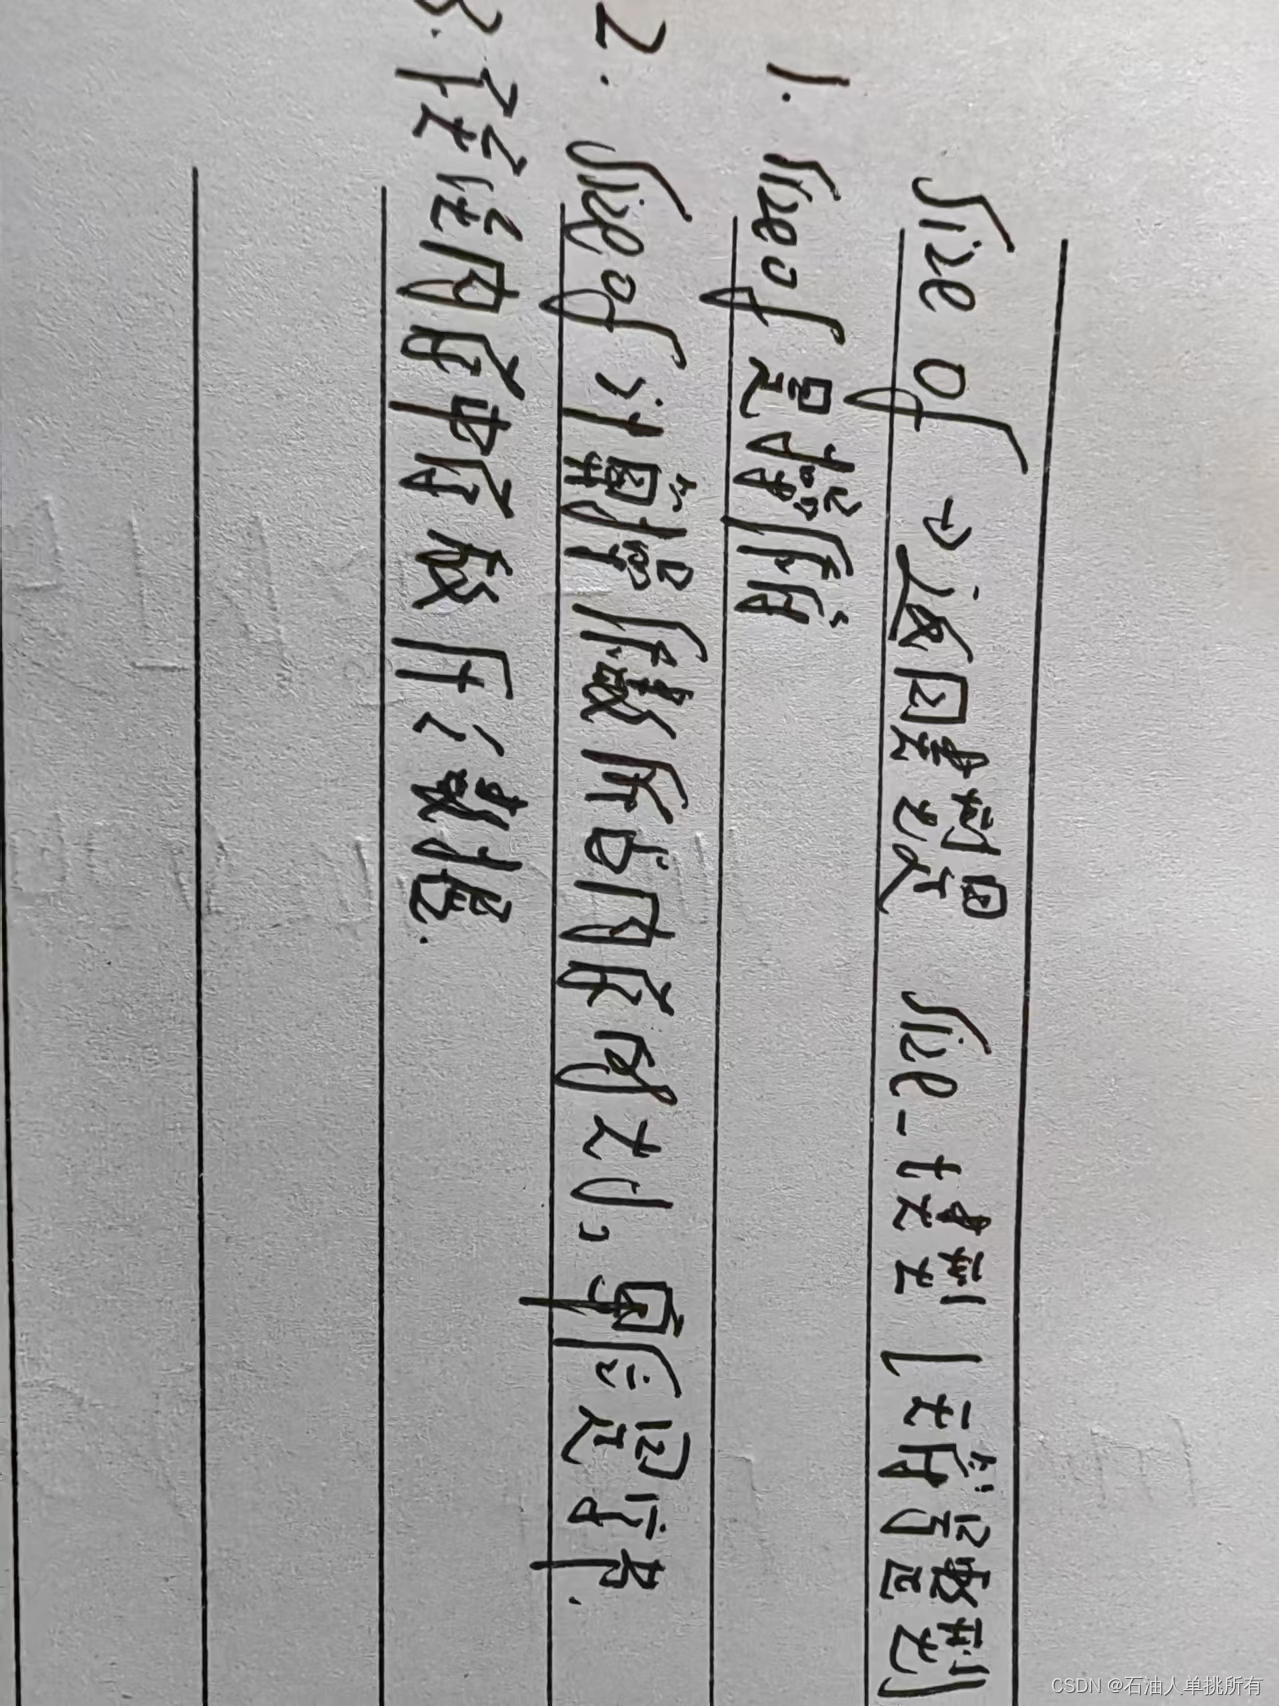 sizeof → 返回类型是 size_t类型 (无符号整型
1. sizeof 是操作符
2. sizeof 计算操作数所占内存的大小,单位是字节.
3. 不在注内存中存放什么数据.
CSDN @石油人单挑所有